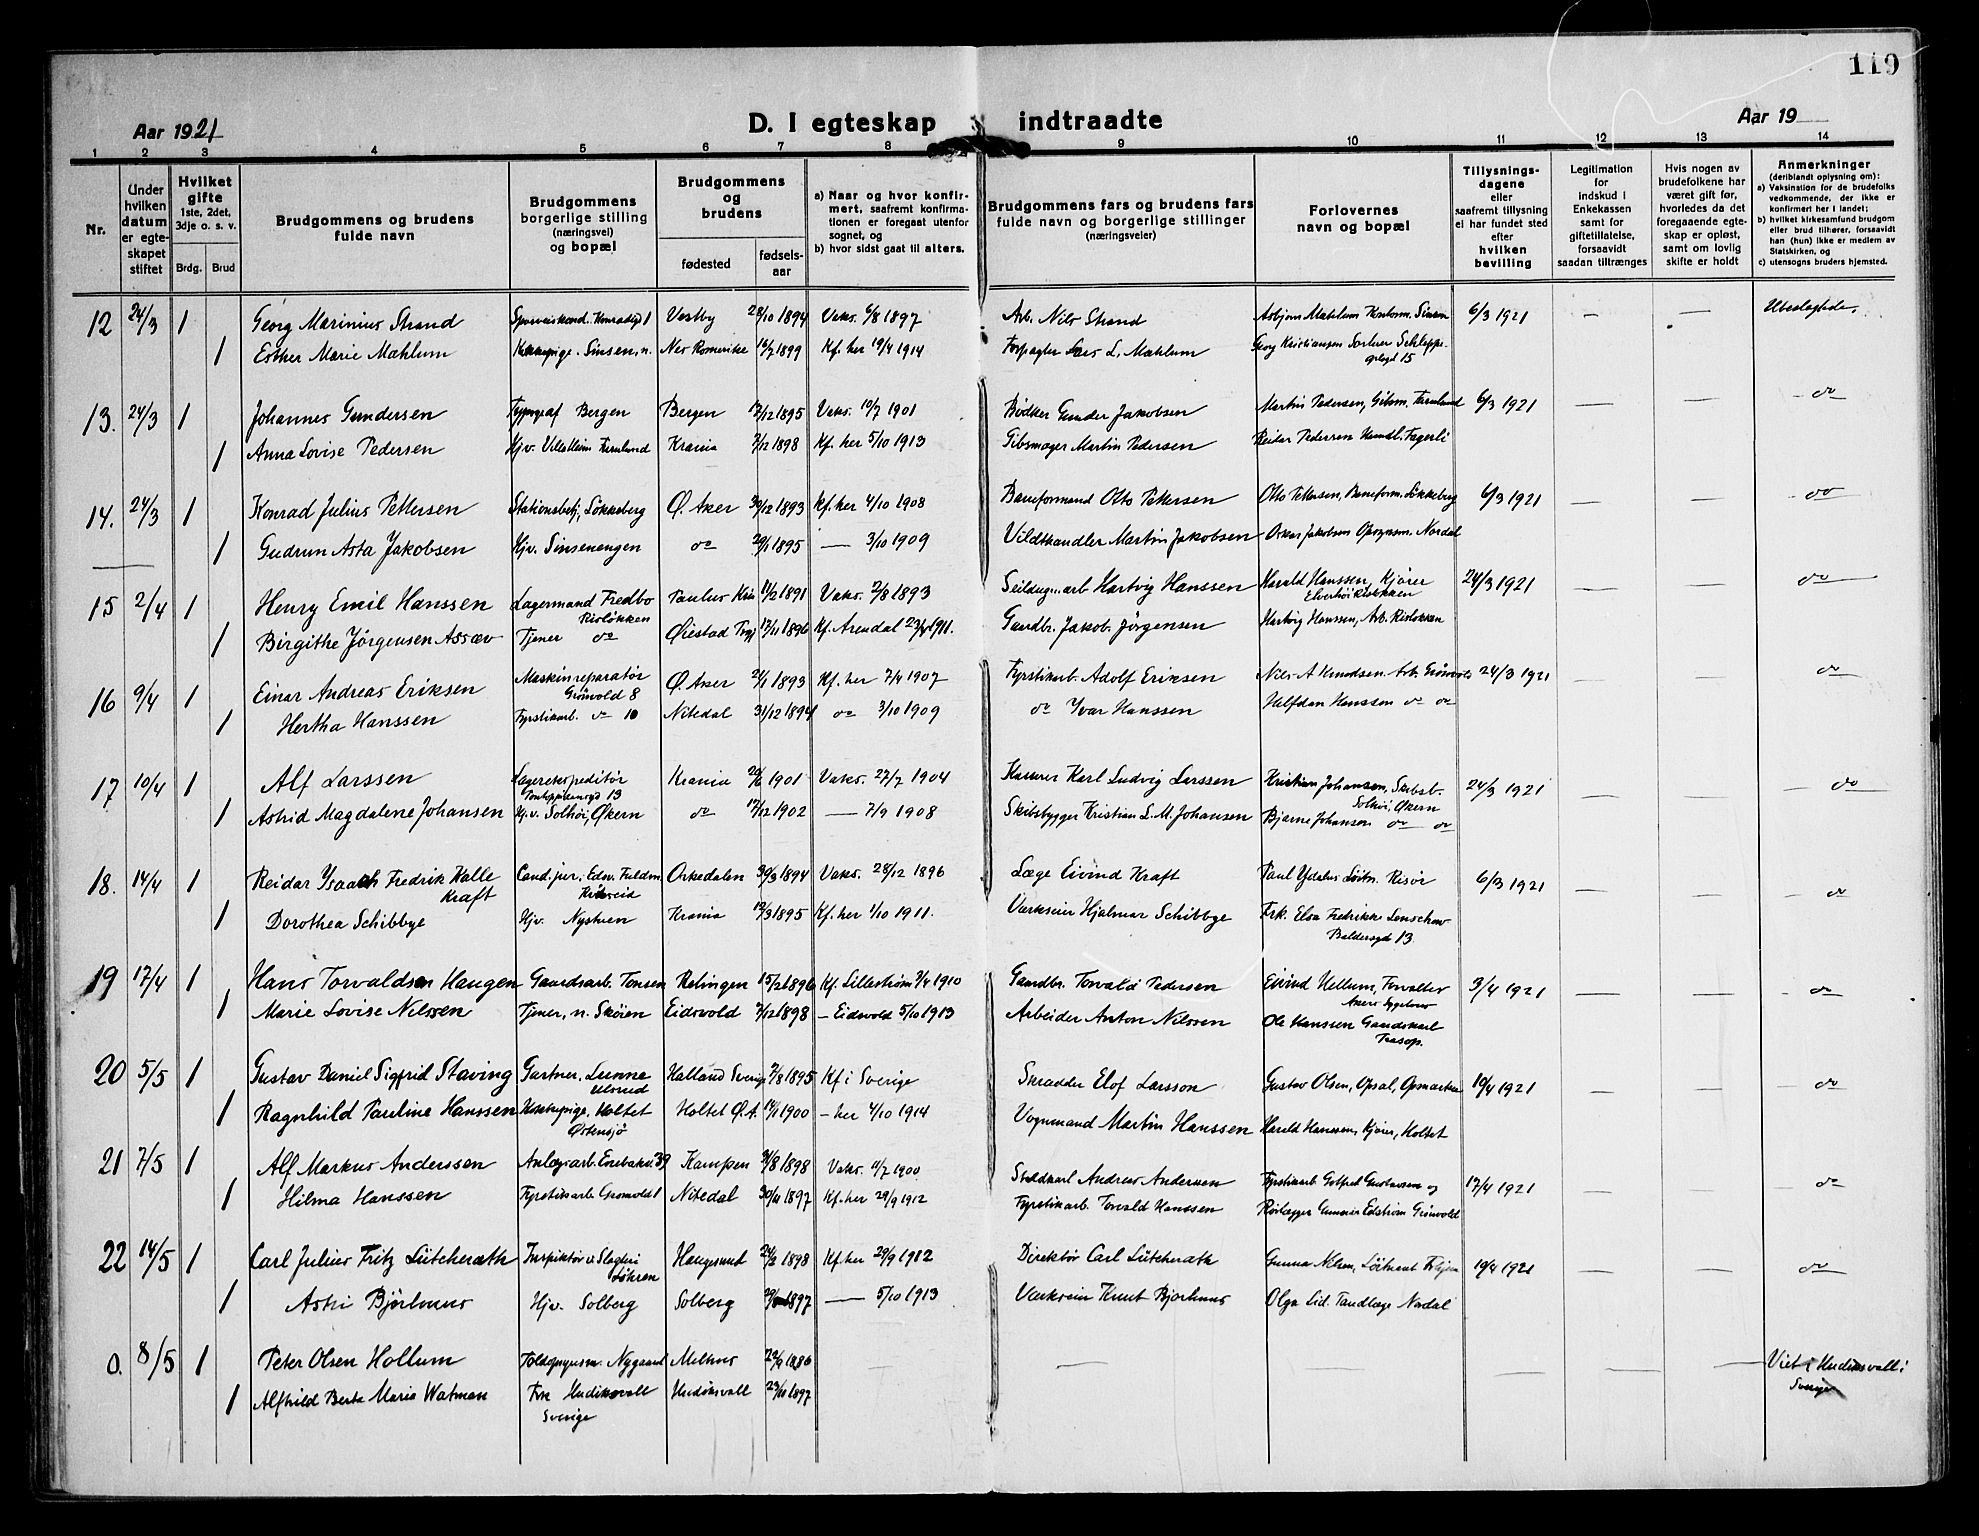 119
Aar 1921
D. I egteskap indtraadte
Aar 19
1 2 3 4 5 6 7 8 9 10 11 12 13 14
Nr.
Under hvilken datum er egteskapet stiftet
Hvilket gifte
1ste, 2det, 3dje o. s. v.
Brdg. Brud
Brudgommens og brudens fulde navn
Brudgommens borgerlige stilling (næringsvei) og bopæl
Brudgommens og brudens
fødested
fødselsaar
a) Naar og hvor konfirmert, saafremt konfirmationen er foregaat utenfor sognet, og
b) hvor sidst gaat til alters.
Brudgommens fars og brudens fars fulde navn og borgerlige stillinger (næringsveier)
Forlovernes navn og bopæl
Tillysningsdagene eller saafremt tillysning ei har fundet sted efter hvilken bevilling
Legitimation for indskud i Enkekassen samt for giftetillatelse, forsaavidt saadan tiltrænges
Hvis nogen av brudefolkene har været gift før, hvorledes da det foregaaende egteskap er opløst, samt om lovlig skifte er holdt
Anmerkninger
(deriblandt oplysning om):
a) Vaksination for de brudefolks vedkommende, der ikke er konfirmert her i landet;
b) hvilket kirkesamfund brudgom eller brud tilhører, forsaavidt han (hun) ikke er medlem av Statskirken, og
c) utensogns bruders hjemsted.
12 24/3 1 Georg Marinius Strand Vestby 28/10 1894 Vaks. 6/8 1897 Arb. Nils Strand Asbjørn Mæhlum Kontorm. Sinsen 6/3 1921 — — Ubeslegtede.
1 Esther Marie Mæhlum Kokkepige. Sinsen, n. Nes Romerike 16/7 1899 Kf. her 19/4 1914 Forpagter Lars L. Mæhlum Georg Kristiansen Sorterer Schleppegrelsgd 15
13. 24/3 1 Johannes Gundersen Typograf Bergen Bergen 12/12 1895 Vaks. 10/7 1901 Bødker Gunder Jakobsen Martin Pedersen, Gibsm. Furulund 6/3 1921 — — do
1 Anna Lovise Pedersen Hjv. Villa Heim Furulund Krania 7/12 1898 Kf. her 5/10 1913 Gibsmager Martin Pedersen Reidar Pedersen Handl. Fagerli
14. 24/3 1 Konrad Julius Pettersen Stationsbetj. Løkkeberg Ø. Aker 30/12 1893 Kf. her 4/10 1908 Baneformand Otto Pettersen Otto Pettersen, Baneform. Løkkeberg 6/3 1921 — — do
1 Gudrun Asta Jakobsen Hjv. Sinsenengen do 20/1 1895 — 3/10 1909 Vildthandler Martin Jakobsen Oskar Jakobsen Opsynsm. Nordal
15 2/4 1 Henry Emil Hanssen Lagermand Fredbo Risløkken Paulus Kria 11/2 1891 Vaks. 2/8 1893 Seildugsarb Hartvig Hanssen Harald Hanssen, Kjører Elverhøi Risløkken 24/3 1921 — — do
1 Birgithe Jörgensen Assæv Tjener do Øiestad 17/11 1896 Kf. Arendal 1911. Gaardbr. Jakob Jörgensen Hartvig Hanssen, Arb. Risløkken
16 9/4 1 Einar Andreas Eriksen Maskinreparatør Grønvold 8 Ø. Aker 21/1 1893 Kf. her 7/4 1907 Fyrstikarb. Adolf Eriksen Nils A Knudsen Arb. Grønvold 24/3 1921 — — do
1 Hertha Hanssen Fyrstikarb. do 10 Nitedal 31/12 1894 do 3/10 1909 do Yvar Hanssen Halfdan Hanssen do do
17 10/4 1 Alf Larssen Lagerekspeditør Pontoppidansgd 13 Krania 20/6 1901 Vaks. 27/7 1904 Kasserer Karl Ludvig Larssen Kristian Johansen, Skibsb. Solhøi, Økern 24/3 1921 — — do
1 Astrid Magdalene Johansen Hjv. Solhøi, Økern do 17/12 1902 — 7/9 1908 Skibsbygger Kristian L. M. Johansen Bjarne Johansen do do
18. 14/4 1 Reidar Ysaach Fredrik Halle Kraft Cand. jur. Orkedalen 30/3 1894 Vaks. 28/12 1896 Læge Eivind Kraft Paul Risør 6/3 1921 — — do
1 Dorothea Schibbye Hjv. Nystuen Krania 12/3 1895 Kf. her 1/10 1911. Værkseier Hjalmar Schibbye Frk. Elsa Fredrikke Lenschow Baldersgd 13
19 17/4 1 Hans Torvaldsen Haugen Gaardsarb. Tonsen Relingen 15/2 1896 Kf. Lillestrøm 3/4 1910 Gaardbr. Torvald Pedersen Eivind Hellum, Forvalter Akers sygehus 3/4 1921 — — do
1 Marie Lovise Nilssen Tjener, n. Skøien Eidsvold 7/12 1898 — Eidsvold 5/10 1913 Arbeider Anton Nilssen Ole Hanssen Gaardskarl Trasop.
20 5/5 1 Gustav Daniel Sigfrid Staving Gartner, Lunna Ulsrud Halland Sverige 7/8 1895 Kf i Sverige Skrædder Elof Larsson Gustav Olsen, Opsal, Opsmarka 19/4 1921 — — do
1 Ragnhild Pauline Hanssen Kokkepige, Holtet Østensjø Holtet Ø. A. 14/1 1900 — her 4/10 1914 Vognmand Martin Hanssen Harald Hanssen, Kjører, Holtet
21 7/5 1 Alf Markus Anderssen Anlægsarb. Enebakv. 39 Kampen 31/8 1898 Vaks. 11/7 1900 Staldkarl Andreas Andersen Fyrstikarb Gotfred Gustavsen og 17/4 1921 — — do
1 Hilma Hanssen Fyrstikarb. Grønvold 1 Nitedal 30/11 1897 Kf. her 29/9 1912 Fyrstikarb. Torvald Hanssen Rørlægger Gunnar Edstrøm Grønvold
22 14/5 1 Carl Julius Fritz Lütcherath Inspiktør v. Slagteri Løhren Haugesund 1898 Kf. her 29/9 1912 Direktør Carl Lütcherath Gunnar Nilsen, Löitnant 19/4 1921 — — do
1 Astri Bjørhnus Hjv. Solberg Solberg 1897 — 5/10 1913 Værkseier Knut Bjørhnus Olga Lid. Tandlæge Nordal
0. 8/5 1 Peter Olsen Hollum Toldopsynsm. Nygaard Melhus 22/9 1886 — — — — — Viet i Hudiksvall i Sverige
1 Alfhild Berta Maria Watman Frk Hudiksvall Sverige Hudiksvall 23/11 1897